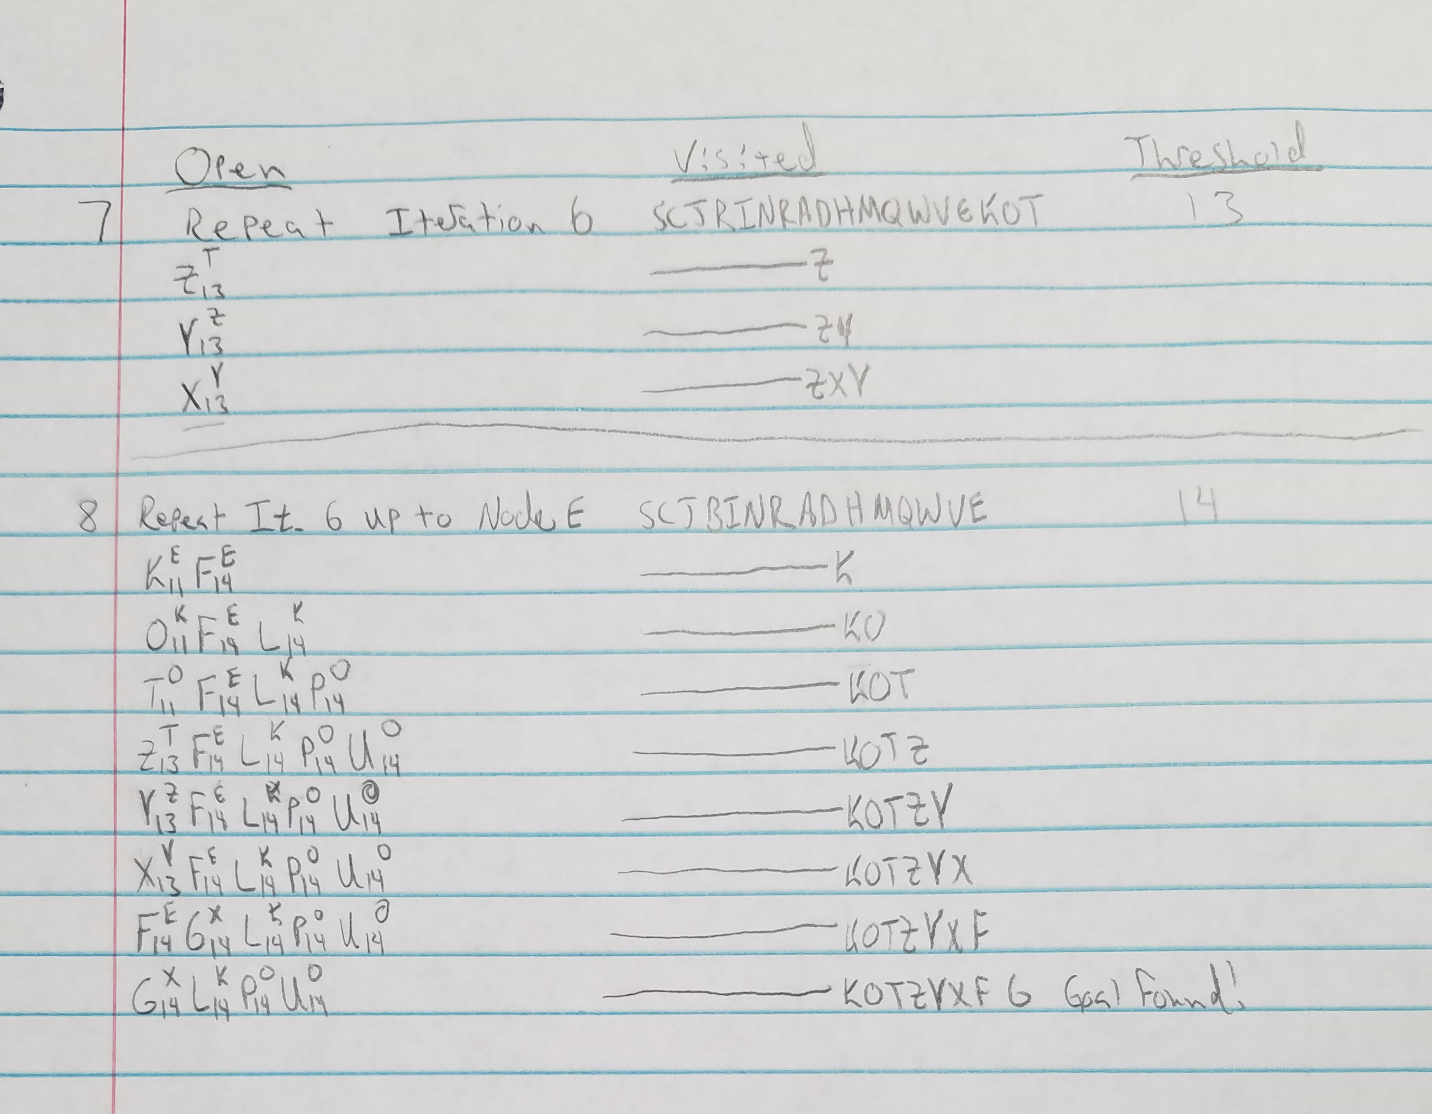 Open Visited Threshold
7 Repeat Iteration 6 SCJRINRADHMQWVEKOT 13
Z₁₃ᵀ ——— Z
Y₁₃ᶻ ——— ZY
X₁₃ʸ ——— ZXY
8 Repeat It. 6 up to Node E SCJBINRADHMQWVE 14
K₁₁ᴱ F₁₄ᴱ ——— K
O₁₁ᴷ F₁₄ᴱ L₁₄ᴷ ——— KO
T₁₁ᴼ F₁₄ᴱ L₁₄ᴷ P₁₄ᴼ ——— KOT
Z₁₃ᵀ F₁₄ᴱ L₁₄ᴷ P₁₄ᴼ U₁₄ᴼ ——— KOTZ
Y₁₃ᶻ F₁₄ᴱ L₁₄ᴷ P₁₄ᴼ U₁₄ᴼ ——— KOTZY
X₁₃ʸ F₁₄ᴱ L₁₄ᴷ P₁₄ᴼ U₁₄ᴼ ——— KOTZYX
F₁₄ᴱ G₁₄ˣ L₁₄ᴷ P₁₄ᴼ U₁₄ᴼ ——— KOTZYXF
G₁₄ˣ L₁₄ᴷ P₁₄ᴼ U₁₄ᴼ ——— KOTZYXF G Goal Found!